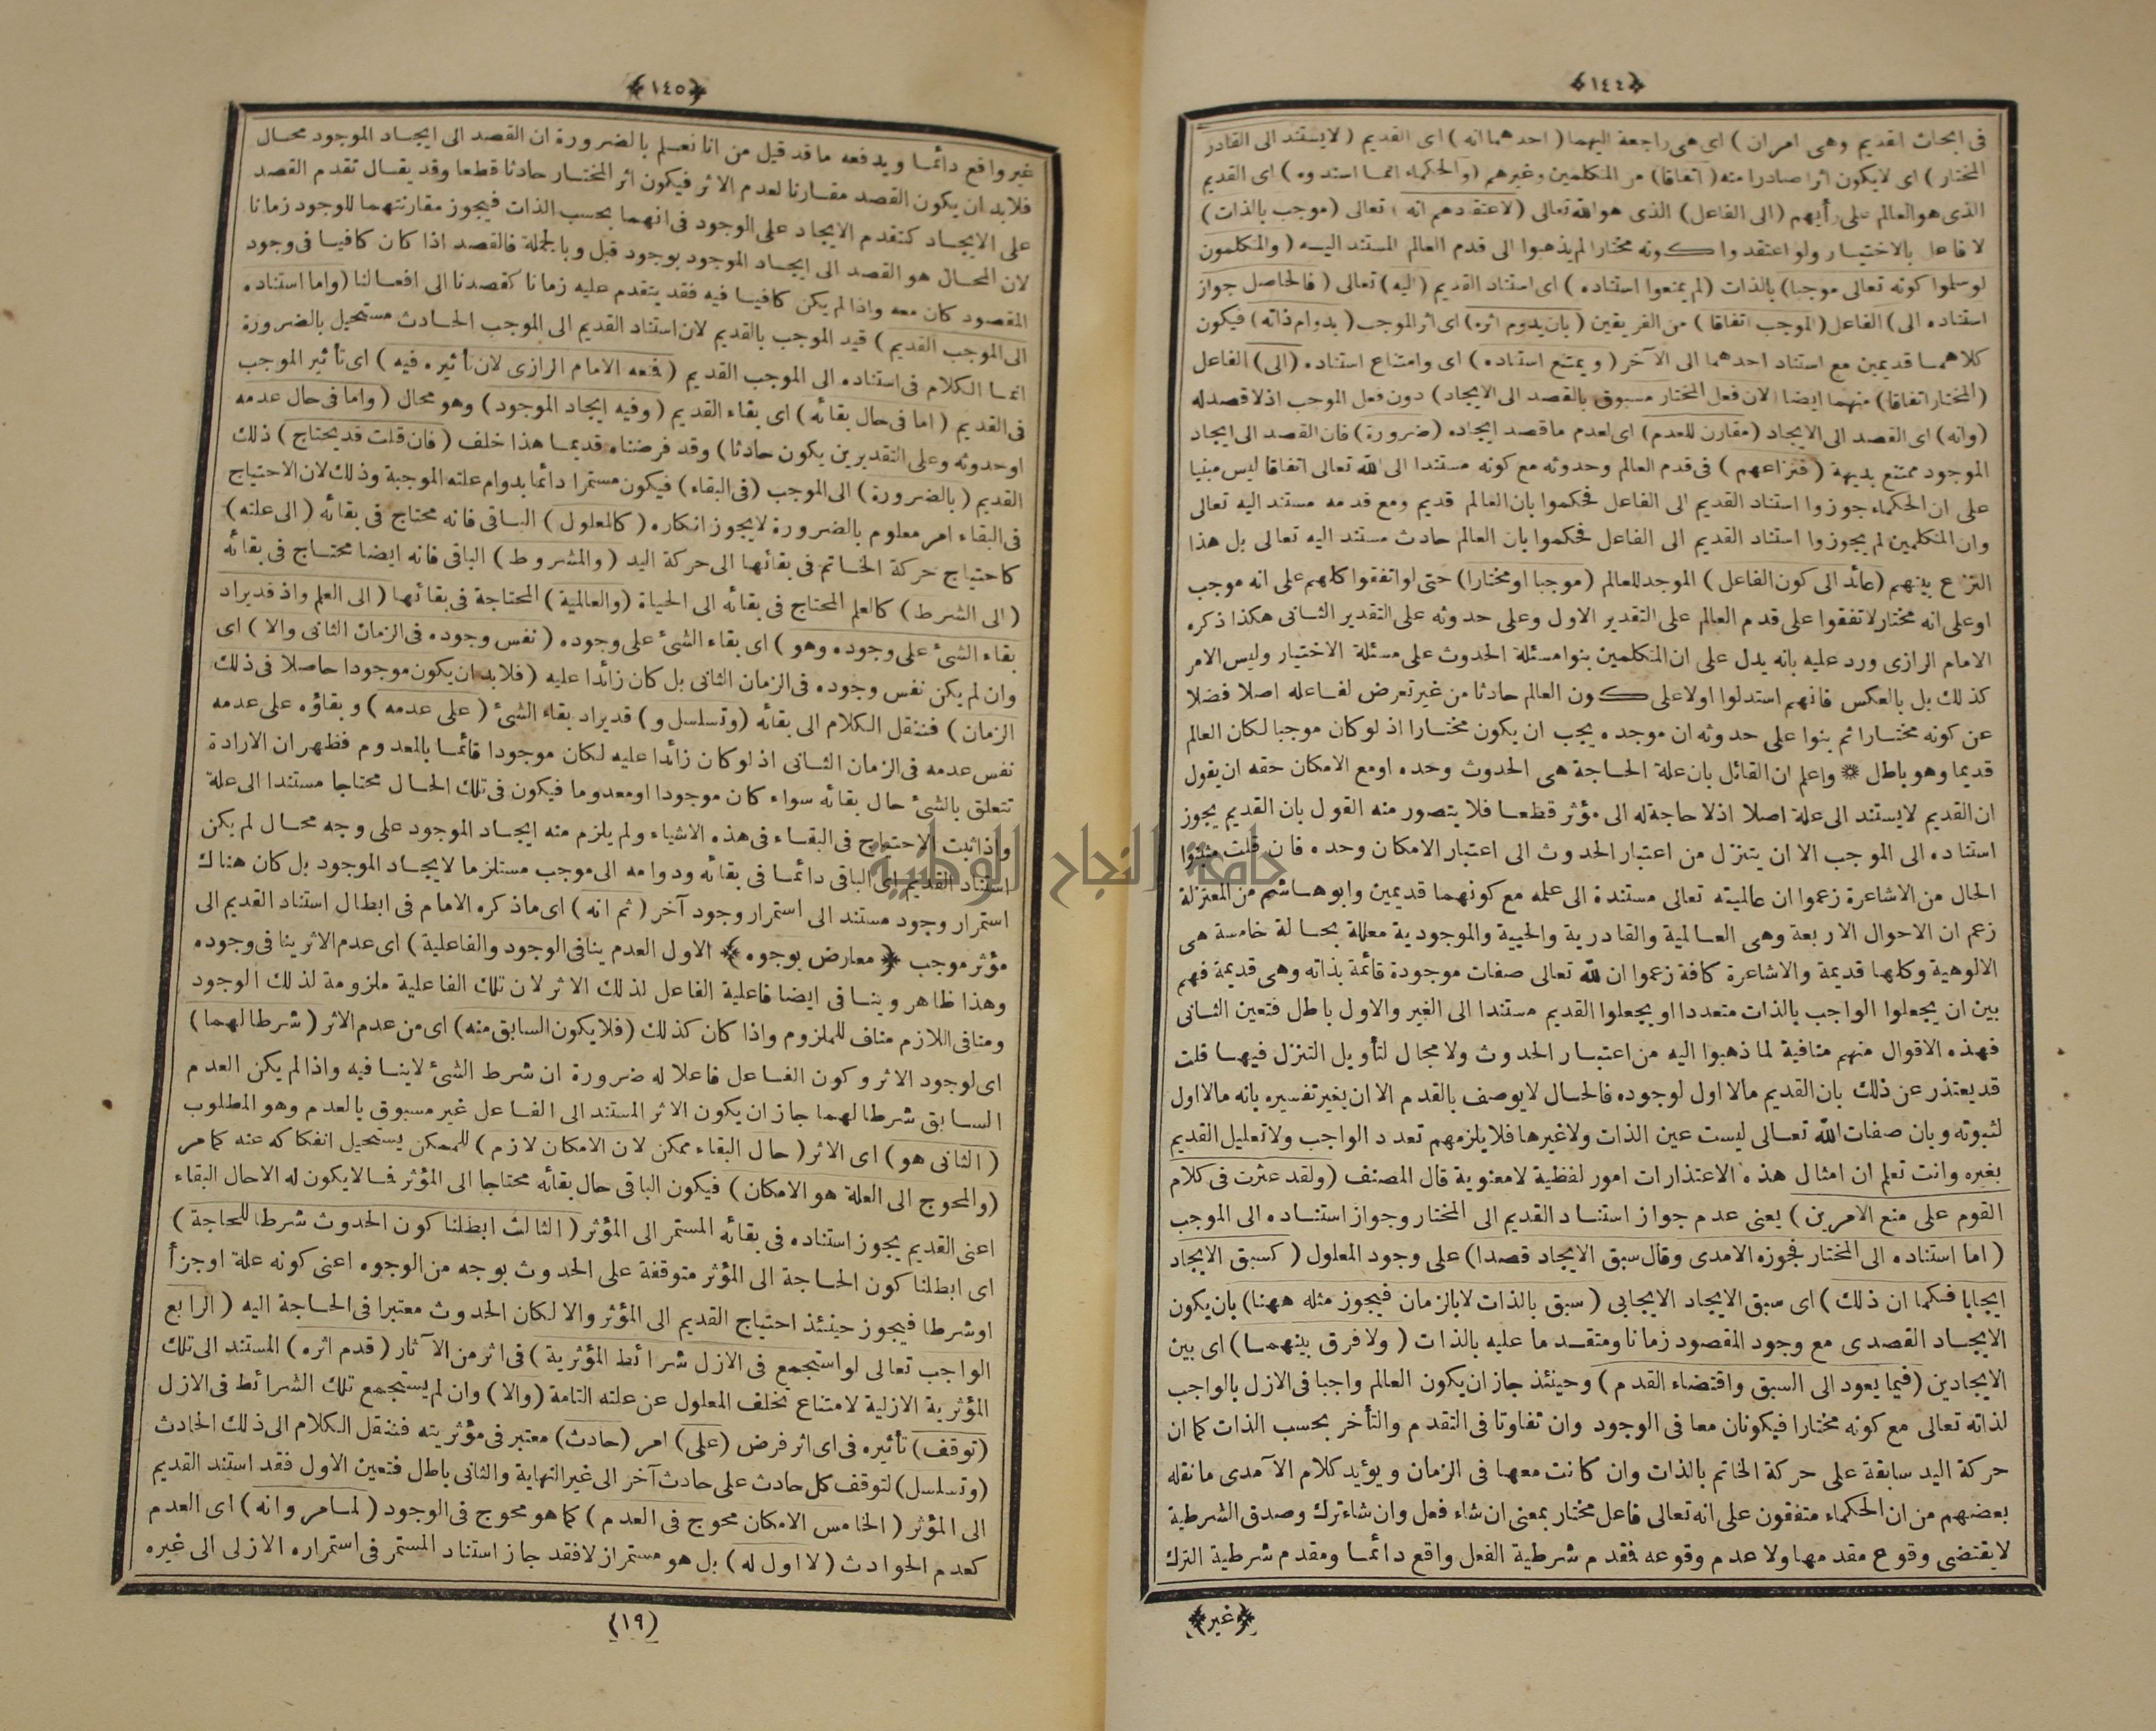 ﴿١٤٤﴾
فى ابحاث القديم وهى امران ) اى هى راجعة اليهما ( احدهما انه ) اى القديم ( لا يستند الى القادر
المختار ) اى لا يكون اثرا صادرا منه ( اتفاقا ) من المتكلمين وغيرهم ( والحكماء انما اسندوه ) اى القديم
الذى هو العالم على رأيهم ( الى الفاعل ) الذى هو الله تعالى ( لاعتقادهم انه ) تعالى ( موجب بالذات )
لا فاعل بالاختيار ولو اعتقدوا كونه مختارا لم يذهبوا الى قدم العالم المستند اليه ( والمتكلمون
لو سلموا كونه تعالى موجبا ) بالذات ( لم يمنعوا استناده ) اى استناد القديم ( اليه ) تعالى ( فالحاصل جواز
استناده الى ) الفاعل ( الموجب اتفاقا ) من الفريقين ( بان يدوم اثره ) اى اثر الموجب ( بدوام ذاته ) فيكون
كلاهما قديمين مع استناد احدهما الى الآخر ( ويمتنع استناده ) اى وامتناع استناده ( الى ) الفاعل
( المختار اتفاقا ) منهما ايضا ( لان فعل المختار مسبوق بالقصد الى الايجاد ) دون فعل الموجب اذ لا قصد له
( وانه ) اى القصد الى الايجاد ( مقارن للعدم ) اى لعدم ما قصد ايجاده ( ضرورة ) فان القصد الى ايجاد
الموجود ممتنع بديهة ( فنزاعهم ) فى قدم العالم وحدوثه مع كونه مستندا الى الله تعالى اتفاقا ليس مبنيا
على ان الحكماء جوزوا استناد القديم الى الفاعل فحكموا بان العالم قديم ومع قدمه مستند اليه تعالى
وان المتكلمين لم يجوزوا استناد القديم الى الفاعل فحكموا بان العالم حادث مستند اليه تعالى بل هذا
النزاع بينهم ( عائد الى كون الفاعل ) الموجد للعالم ( موجبا او مختارا ) حتى لو اتفقوا كلهم على انه موجب
او على انه مختار لاتفقوا على قدم العالم على التقدير الاول وعلى حدوثه على التقدير الثانى هكذا ذكره
الامام الرازى ورد عليه بانه يدل على ان المتكلمين بنوا مسئلة الحدوث على مسئلة الاختيار وليس الامر
كذلك بل بالعكس فانهم استدلوا اولا على كون العالم حادثا من غير تعرض لفاعله اصلا فضلا
عن كونه مختارا ثم بنوا على حدوثه ان موجده يجب ان يكون مختارا اذ لو كان موجبا لكان العالم
قديما وهو باطل ❊ واعلم ان القائل بان علة الحاجة هى الحدوث وحده او مع الامكان حقه ان يقول
ان القديم لا يستند الى علة اصلا اذ لا حاجة له الى مؤثر قطعا فلا يتصور منه القول بان القديم يجوز
استناده الى الموجب الا ان يتنزل من اعتبار الحدوث الى اعتبار الامكان وحده فان قلت مثبتوا
الحال من الاشاعرة زعموا ان عالميته تعالى مستندة الى علمه مع كونهما قديمين وابو هاشم من المعتزلة
زعم ان الاحوال الاربعة وهى العالمية والقادرية والحيية والموجودية معللة بحالة خامسة هى
الالوهية وكلها قديمة والاشاعرة كافة زعموا ان لله تعالى صفات موجودة قائمة بذاته وهى قديمة فهم
بين ان يجعلوا الواجب بالذات متعددا او يجعلوا القديم مستندا الى الغير والاول باطل فتعين الثانى
فهذه الاقوال منهم منافية لما ذهبوا اليه من اعتبار الحدوث ولا مجال لتأويل التنزل فيها قلت
قد يعتذر عن ذلك بان القديم مالا اول لوجوده فالحال لا يوصف بالقدم الا ان يغير تفسيره بانه مالا اول
لثبوته وبان صفات الله تعالى ليست عين الذات ولا غيرها فلا يلزمهم تعدد الواجب ولا تعليل القديم
بغيره وانت تعلم ان امثال هذه الاعتذارات امور لفظية لا معنوية قال المصنف ( ولقد عثرت فى كلام
القوم على منع الامرين ) يعنى عدم جواز استناد القديم الى المختار وجواز استناده الى الموجب
( اما استناده الى المختار فجوزه الامدى وقال سبق الايجاد قصدا ) على وجود المعلول ( كسبق الايجاد
ايجابا فكما ان ذلك ) اى سبق الايجاد الايجابى ( سبق بالذات لا بالزمان فيجوز مثله ههنا ) بان يكون
الايجاد القصدى مع وجود المقصود زمانا ومتقدما عليه بالذات ( ولا فرق بينهما ) اى بين
الايجادين ( فيما يعود الى السبق واقتضاء القدم ) وحينئذ جاز ان يكون العالم واجبا فى الازل بالواجب
لذاته تعالى مع كونه مختارا فيكونان معا فى الوجود وان تفاوتا فى التقدم والتأخر بحسب الذات كما ان
حركة اليد سابقة على حركة الخاتم بالذات وان كانت معها فى الزمان ويؤيد كلام الآمدى ما نقله
بعضهم من ان الحكماء متفقون على انه تعالى فاعل مختار بمعنى ان شاء فعل وان شاء ترك وصدق الشرطية
لا يقتضى وقوع مقدمها ولا عدم وقوعه فقدم شرطية الفعل واقع دائما ومقدم شرطية الترك
﴿غير﴾
﴿١٤٥﴾
غير واقع دائما ويدفعه ما قد قيل من انا نعلم بالضرورة ان القصد الى ايجاد الموجود محال
فلا بد ان يكون القصد مقارنا لعدم الاثر فيكون اثر المختار حادثا قطعا وقد يقال تقدم القصد
على الايجاد كتقدم الايجاد على الوجود فى انهما بحسب الذات فيجوز مقارنتهما للوجود زمانا
لان المحال هو القصد الى ايجاد الموجود بوجود قبل وبالجملة فالقصد اذا كان كافيا فى وجود
المقصود كان معه واذا لم يكن كافيا فيه فقد يتقدم عليه زمانا كقصدنا الى افعالنا ( واما استناده
الى الموجب القديم ) قيد الموجب بالقديم لان استناد القديم الى الموجب الحادث مستحيل بالضرورة
انما الكلام فى استناده الى الموجب القديم ( فمنعه الامام الرازى لان تأثيره فيه ) اى تأثير الموجب
فى القديم ( اما فى حال بقائه ) اى بقاء القديم ( وفيه ايجاد الموجود ) وهو محال ( واما فى حال عدمه
او حدوثه وعلى التقديرين يكون حادثا ) وقد فرضناه قديما هذا خلف ( فان قلت قد يحتاج ) ذلك
القديم ( بالضرورة ) الى الموجب ( فى البقاء ) فيكون مستمرا دائما بدوام علته الموجبة وذلك لان الاحتياج
فى البقاء امر معلوم بالضرورة لا يجوز انكاره ( كالمعلول ) الباقى فانه محتاج فى بقائه ( الى علته )
كاحتياج حركة الخاتم فى بقائها الى حركة اليد ( والمشروط ) الباقى فانه ايضا محتاج فى بقائه
( الى الشرط ) كالعلم المحتاج فى بقائه الى الحياة ( والعالمية ) المحتاجة فى بقائها ( الى العلم واذ قد يراد
بقاء الشئ على وجوده وهو ) اى بقاء الشئ على وجوده ( نفس وجوده فى الزمان الثانى والا ) اى
وان لم يكن نفس وجوده فى الزمان الثانى بل كان زائدا عليه ( فلا بد ان يكون موجودا حاصلا فى ذلك
الزمان ) فننقل الكلام الى بقائه ( وتسلسل و ) قد يراد بقاء الشئ ( على عدمه ) وبقاؤه على عدمه
نفس عدمه فى الزمان الثانى اذ لو كان زائدا عليه لكان موجودا قائما بالمعدوم فظهر ان الارادة
تتعلق بالشئ حال بقائه سواء كان موجودا او معدوما فيكون فى تلك الحال محتاجا مستندا الى علة
واذا ثبت الاحتياج فى البقاء فى هذه الاشياء ولم يلزم منه ايجاد الموجود على وجه محال لم يكن
استناد القديم اى الباقى دائما فى بقائه ودوامه الى موجب مستلزما لايجاد الموجود بل كان هناك
استمرار وجود مستند الى استمرار وجود آخر ( ثم انه ) اى ما ذكره الامام فى ابطال استناد القديم الى
مؤثر موجب ﴿ معارض بوجوه ﴾ الاول العدم ينافى الوجود والفاعلية ) اى عدم الاثر ينافى وجوده
وهذا ظاهر وينافى ايضا فاعلية الفاعل لذلك الاثر لان تلك الفاعلية ملزومة لذلك الوجود
ومنافى اللازم مناف للملزوم واذا كان كذلك ( فلا يكون السابق منه ) اى من عدم الاثر ( شرطا لهما )
اى لوجود الاثر وكون الفاعل فاعلا له ضرورة ان شرط الشئ لا ينافيه واذا لم يكن العدم
السابق شرطا لهما جاز ان يكون الاثر المستند الى الفاعل غير مسبوق بالعدم وهو المطلوب
( الثانى هو ) اى الاثر ( حال البقاء ممكن لان الامكان لازم ) للممكن يستحيل انفكاكه عنه كما مر
( والمحوج الى العلة هو الامكان ) فيكون الباقى حال بقائه محتاجا الى المؤثر فما لا يكون له الا حال البقاء
اعنى القديم يجوز استناده فى بقائه المستمر الى المؤثر ( الثالث ابطلنا كون الحدوث شرطا للحاجة )
اى ابطلنا كون الحاجة الى المؤثر متوقفة على الحدوث بوجه من الوجوه اعنى كونه علة او جزأ
او شرطا فيجوز حينئذ احتياج القديم الى المؤثر والا لكان الحدوث معتبرا فى الحاجة اليه ( الرابع
الواجب تعالى لو استجمع فى الازل شرائط المؤثرية ) فى اثر من الآثار ( قدم اثره ) المستند الى تلك
المؤثرية الازلية لامتناع تخلف المعلول عن علته التامة ( والا ) وان لم يستجمع تلك الشرائط فى الازل
( توقف ) تأثيره فى اى اثر فرض ( على ) امر ( حادث ) معتبر فى مؤثريته فننقل الكلام الى ذلك الحادث
( وتسلسل ) لتوقف كل حادث على حادث آخر الى غير النهاية والثانى باطل فتعين الاول فقد استند القديم
الى المؤثر ( الخامس الامكان محوج فى العدم ) كما هو محوج فى الوجود ( لما مر وانه ) اى العدم
كعدم الحوادث ( لا اول له ) بل هو مستمر ازلا فقد جاز استناد المستمر فى استمراره الازلى الى غيره
(١٩)
جامعة النجاح الوطنية